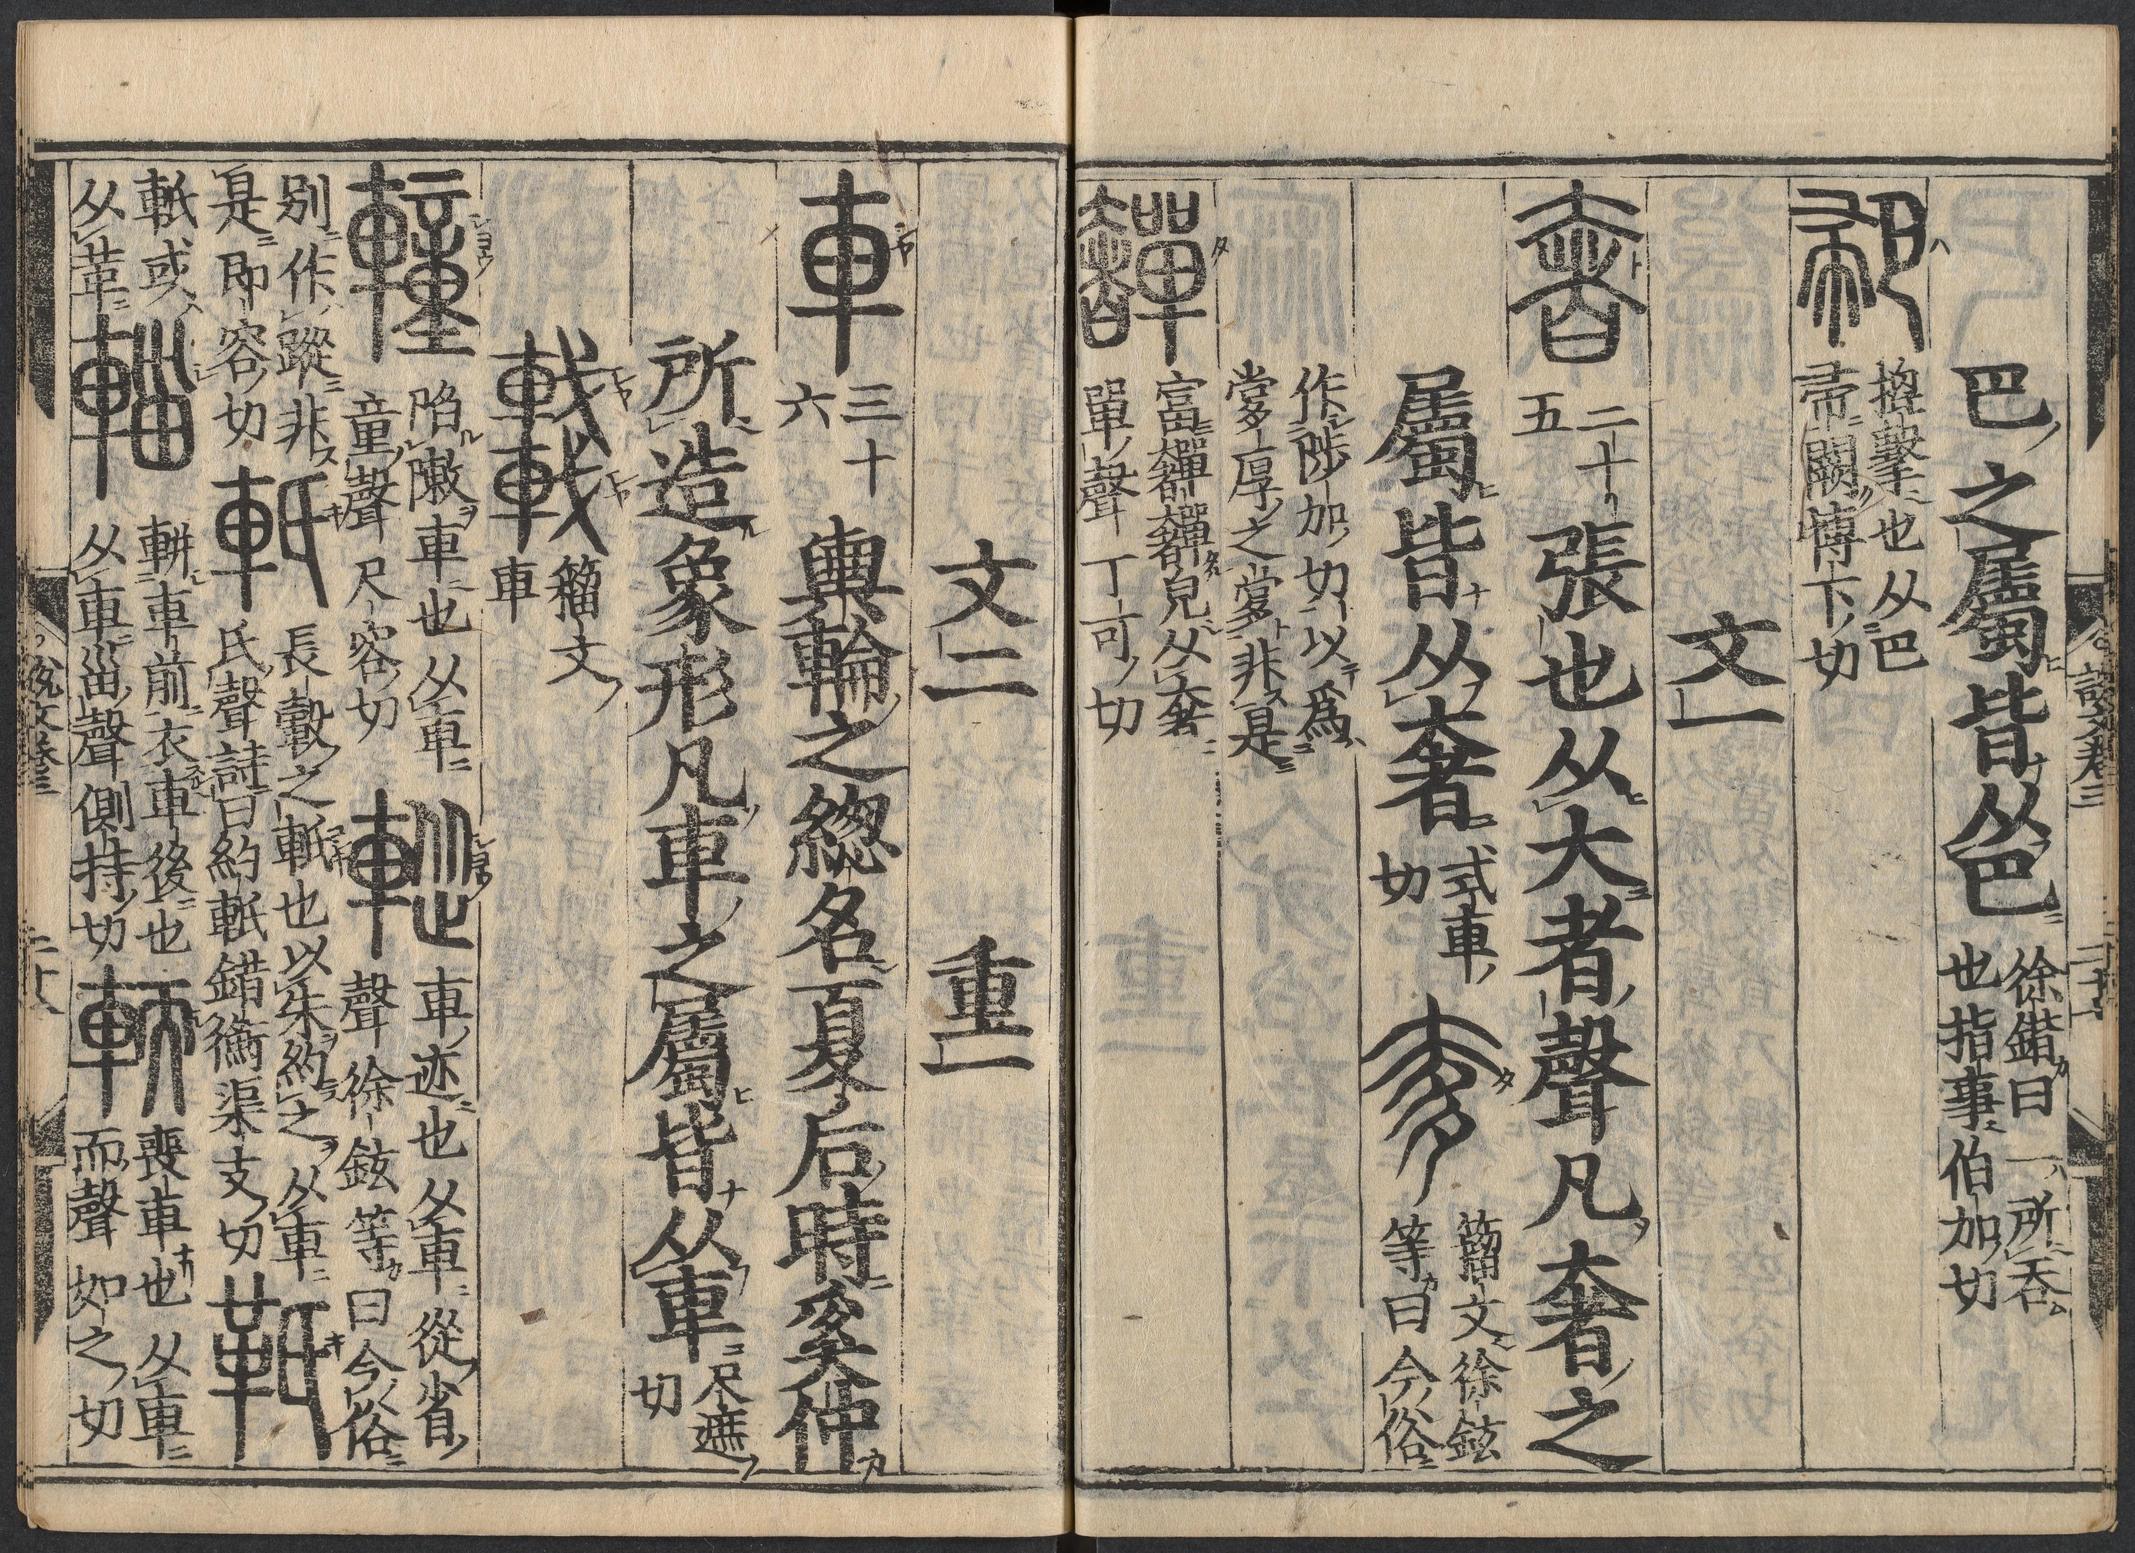 巴之屬皆从巴徐鍇曰一所吞
也指事伯加切
𢁉搲擊也从巴
帚闕博下切
文一
奢二十
五張也从大者聲凡奢之
屬皆从奢式車
切奓籀文徐鉉
等曰今俗
作陟加切以爲
奲多厚之奲多非是
奲富奲奲皃从奢
單聲丁可切
文二 重一
車三十
六輿輪之緫名夏后時奚仲
所造象形凡車之屬皆从車尺遮
切
籀文
車
䡴陷敶車也从車
童聲尺容切
車迹也从車從省
聲徐鉉等曰今俗
別作蹤非
是即容切
軝長轂之軝也以朱約之从車
氏聲詩曰約軝錯衡渠支切
軝或
从革
輜軿車前衣車後也
从車甾聲側持切
輀喪車也从車
而聲如之切
說文卷三
二十七
說文卷三
二十八